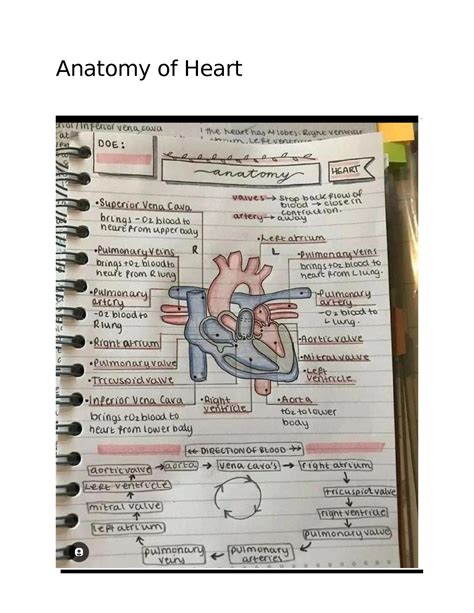 Anatomy of Heart
inferior vena cava
the heart has 4 lobes. Right ventricle
DOE:
anatomy
HEART
valves → stop back flow of
blood → close in
contraction.
artery → away
•Superior Vena Cava
brings -O2 blood to
heart from upper body
•Pulmonary veins
brings +O2 blood to
heart from R lung
•Pulmonary
artery
-O2 blood to
R lung
•Right atrium
•Pulmonary valve
•Tricuspid valve
•Inferior Vena Cava
brings +O2 blood to
heart from lower body
R
L
•Left atrium
•Pulmonary veins
brings +O2 blood to
heart from L lung.
•Pulmonary
artery
-O2 blood to
L lung.
•Aortic valve
•Mitral valve
•Left
ventricle
•Right
ventricle
•Aorta
+O2 to lower
body
←DIRECTION OF BLOOD→
aortic valve → aorta → vena cava's → right atrium
tricuspid valve
right ventricle
pulmonary valve
pulmonary
arteries
pulmonary
veins
left atrium
mitral valve
left ventricle